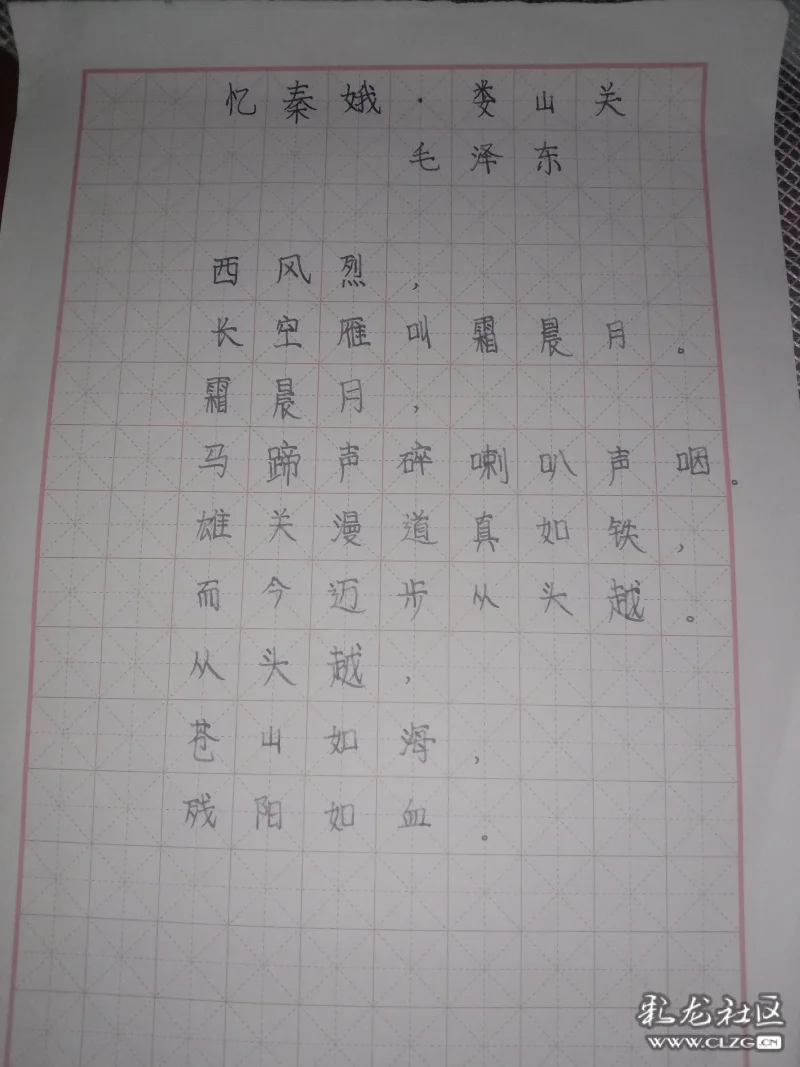 忆秦娥·娄山关
毛泽东
西风烈，
长空雁叫霜晨月。
霜晨月，
马蹄声碎喇叭声咽。
雄关漫道真如铁，
而今迈步从头越。
从头越，
苍山如海，
残阳如血。
彩龙社区
www.CLZG.CN